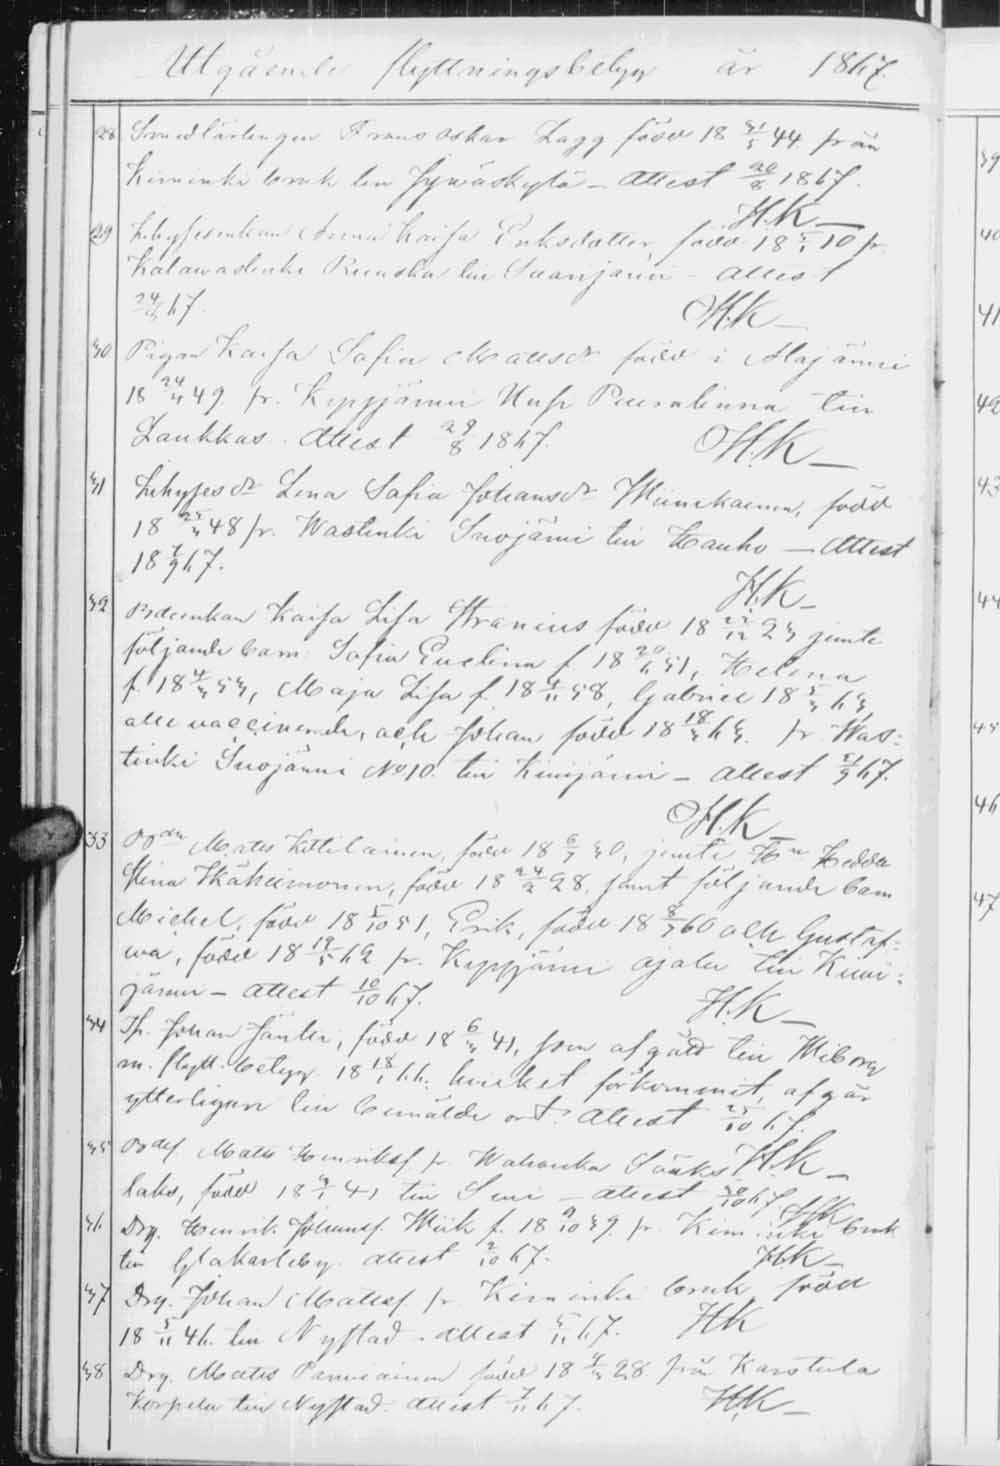 Utgående flyttningsbetyg år 1867.
28 Smedlärlingen Frans Oskar Lagg född 18 31/3 44 från
Kiminki bruk till Jywäskylä – Attest 20/8 1867.
H.K
29 Inhysesenkan Anna Kaisa Eriksdotter, född 18 10 fr.
till Saarijärvi – Attest
24/8 67.
H.K
30 Pigan Kaisa Sofia Mattsdr född i Alajärvi
18 24/11 49 fr. Kyyjärvi Peuralinna till
Laukkas. Attest 29/8 1867.
H.K
31 Inhysesdr Lena Sofia Johansdr född
18 25/3 48 fr. Wastinki till Hauho – Attest
18 7/9 67.
H.K
32 Kaisa Lisa född 18 22/12 23 jemte
följande barn: Sofia Evelina f. 18 20/6 51, Helena
f. 18 4/3 53, Maja Lisa f. 18 4/11 58, Gabriel 18 5/3 63,
alla vaccinerade, och Johan född 18 18/3 63. fr. Was-
tinki No 10. till Kivijärvi – Attest 21/9 67.
H.K
33 Matts Kittilainen, född 18 6/7 30, jemte Hu Hedda
Stina född 18 24/2 28, jemt följande barn
Michel, född 18 5/10 51, Erik, född 18 8/7 60 och Gustaf-
wa, född 18 19/5 62 fr. Kyyjärvi till Kivi-
järvi – Attest 10/10 67.
H.K
34 Johan född 18 6/3 41, som afgått till Wiborg
m. flytt. betyg 18 18/1 66. hvilket förkommit, afgår
ytterligare till bemälde ort. Attest 25/10 67.
H.K
35 Matts Henrikss. fr.
laks, född 18 41 till – Attest 30/10 67
H.K
36 Drg. Henrik Johanss. Wiik f. 18 9/10 39. fr. Kiminki bruk
till Glakarleby. Attest 67.
H.K
37 Drg. Johan Matss. fr. Kiminki bruk född
18 5/11 46. till Nystad. Attest 5/11 67.
H.K
38 Drg. Matts född 18 28 från Karstula
Korpela till Nystad. Attest 7/11 67.
H.K
39
40
41
42
43
44
45
46
47